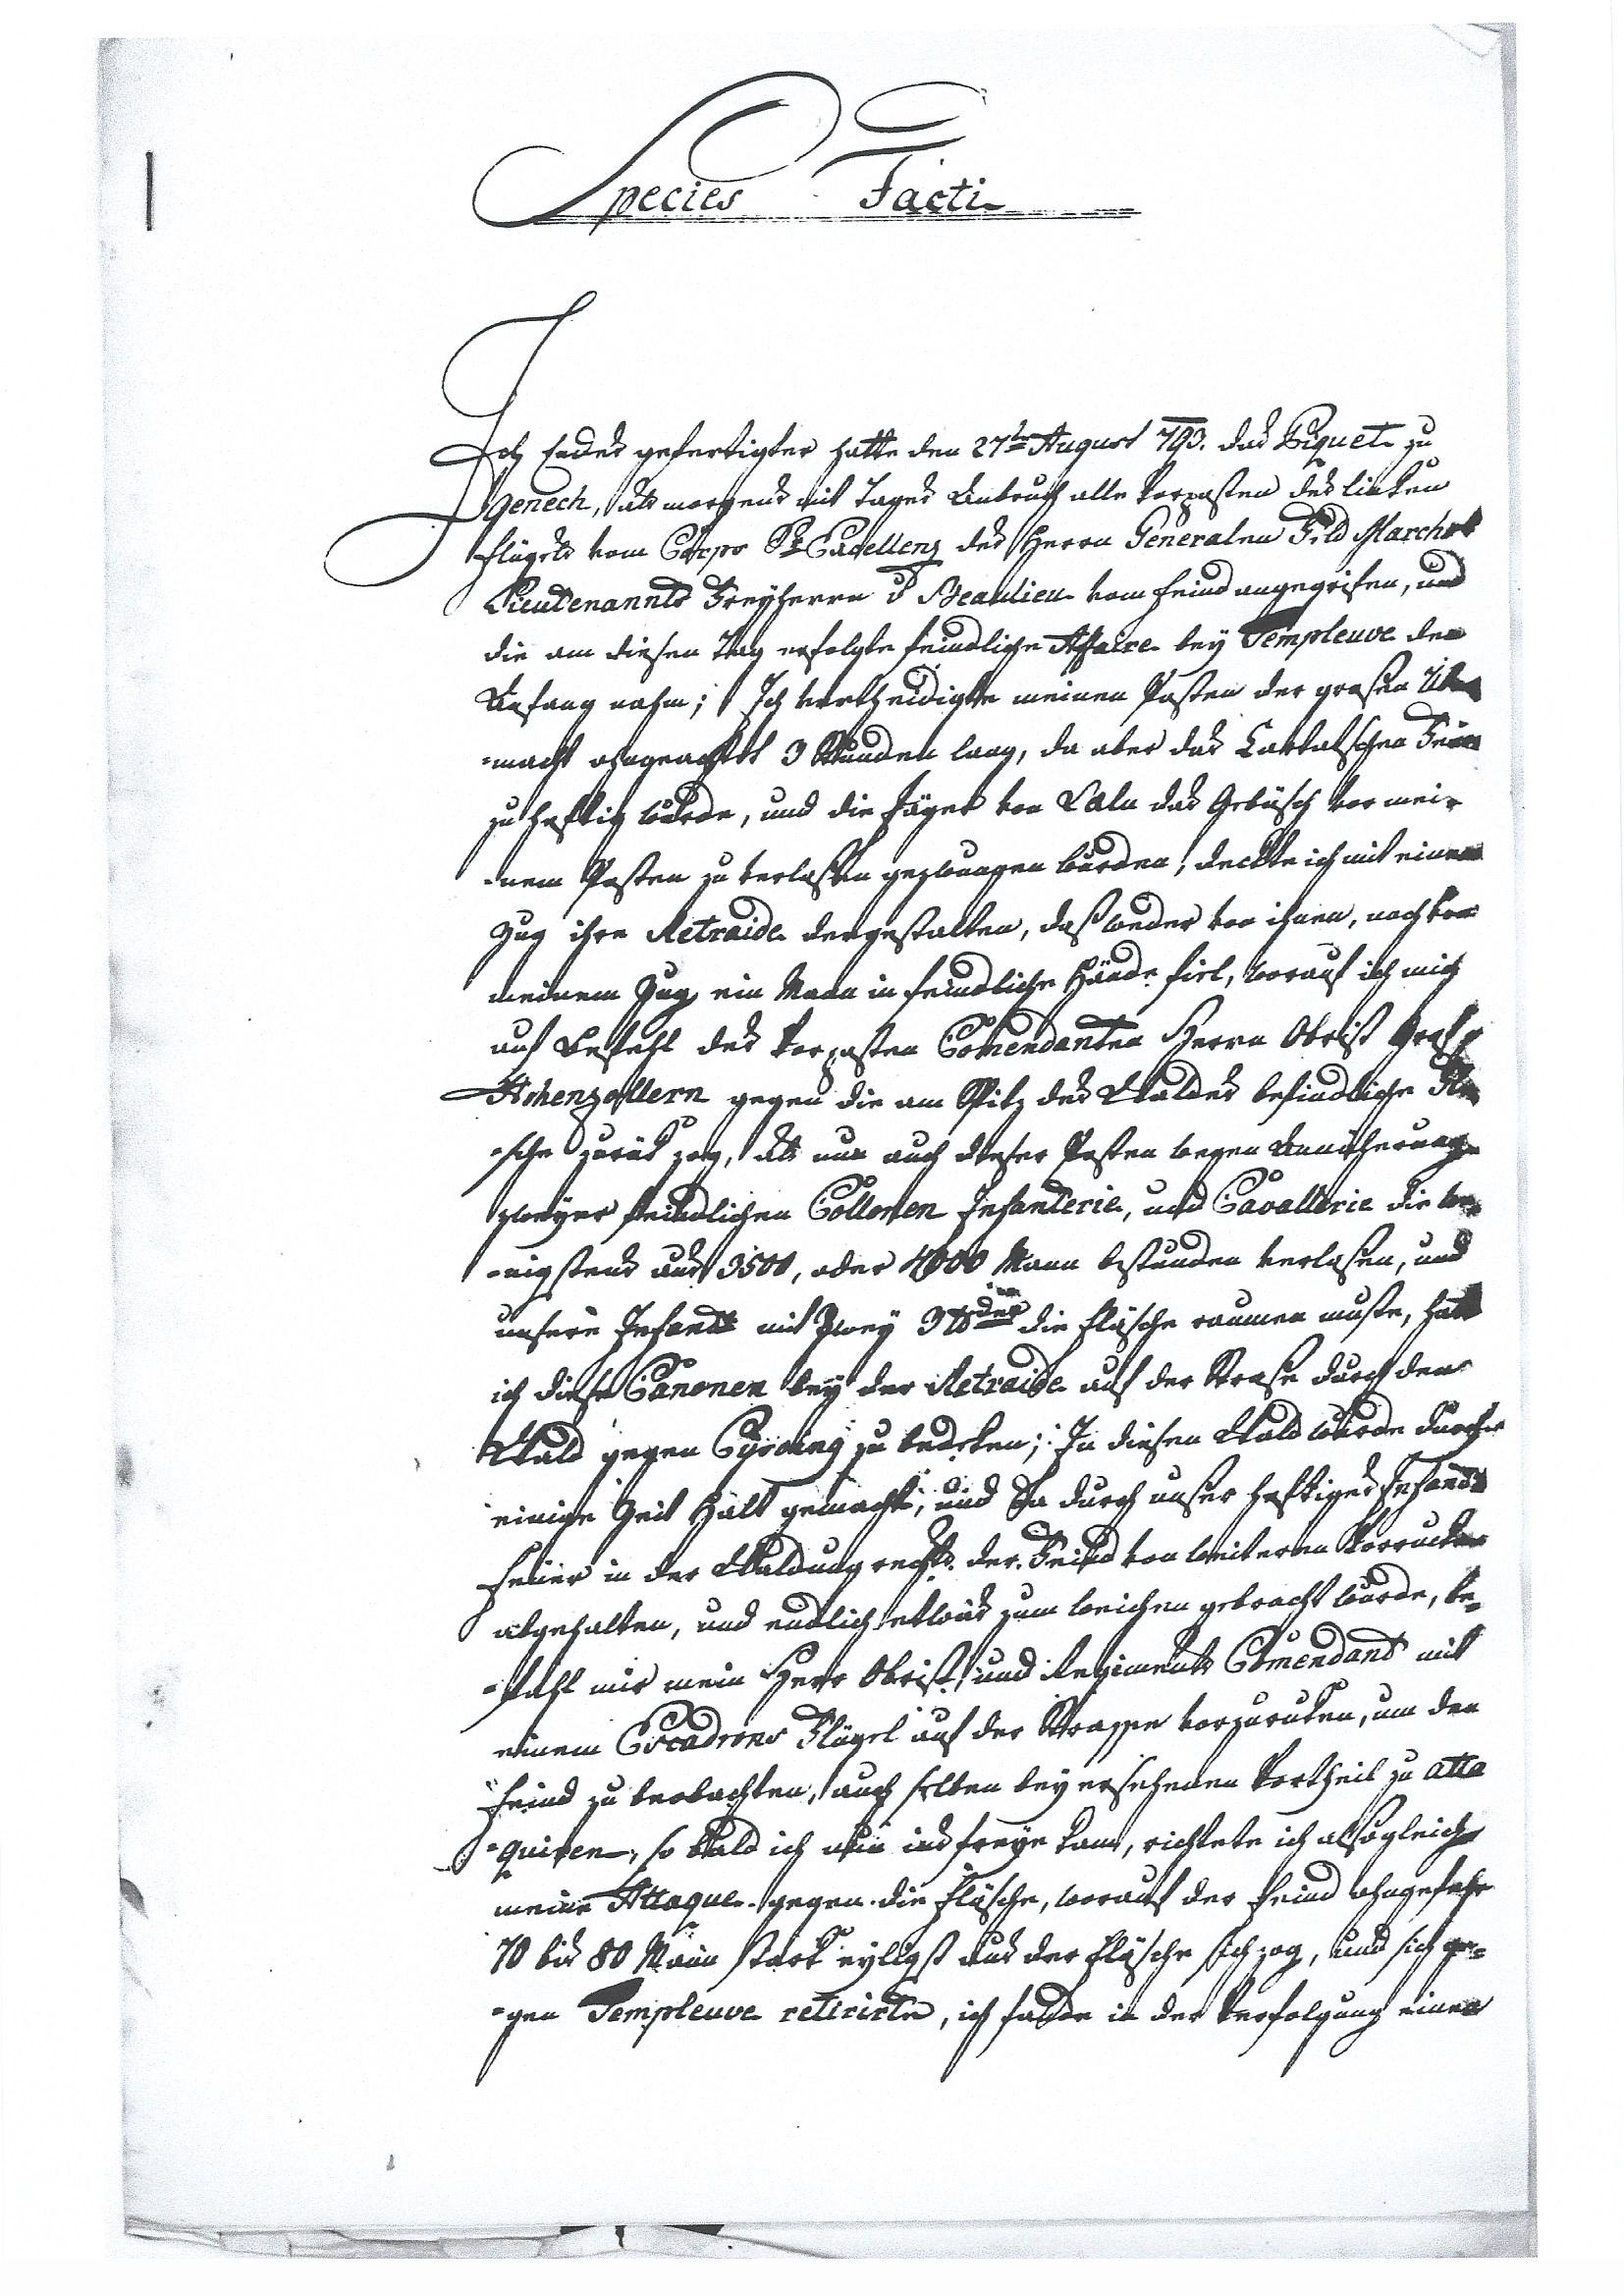 Species Facti
Ich Endes gefertigter hatte den 27ten August 793. das Piquet zu
Genech, als morgens mit Tages Anbruch alle Vorposten des linken
Flügels vom Corps Sr Excellenz des Herrn Generalen Feld March
Lieutenannts Freyherrn v Beaulieu vom Feind angegrifen, und
die am diesen Tag erfolgte feindliche Affaire bey Templeuve den
Anfang nahm; Ich vertheidigte meinen Posten der grosen Über
-macht ohngeachtet 3 Stunden lang, da aber das Cartätschen Feür
zu heftig wurde, und die Jäger von das Gebüsch vor mei-
-nem Posten zu verlaßen gezwungen wurden; deckte ich mit einem
Zug ihre Retraide dergestalten, daß weder von ihnen, noch von
meinem Zug ein Mann in feindliche Hände fiel, worauf ich mich
auf Befehl des Vorposten Comendanten Herrn Obrist Graf
Hohenzollern gegen die am Spitz des Waldes befindliche Flä
-sche zurück zog, als nun auch dieser Posten wegen Annäherung
zweyer feindlichen Collonen Infanterie, und Cavallerie die we-
-nigstens aus 3500, oder 4000 Mann bestunden verlaßen, und
unsere Infantr mit Zwey 3 der die Fläsche raumen muste, hatte
ich diese Canonen bey der Retraide auf der Strase durch den
Wald gegen Cysoing zu bedeken; In diesen Wald wurde durch
einige Zeit Halt gemacht, und da durch unser heftiges Infantr
Feüer in der Waldung rechts der Feind von weiteren Vorrucken
abgehalten, und endlich etwas zum weichen gebracht wurde, be-
-fahl mir mein Herr Obrist, und Regiments Comendant mit
einem Escadrons Flügel auf der Strasse vorzurucken, um den
Feind zu beobachten, auch selben bey ersehenen Vortheil zu atta
-quiren, so bald ich nun ins freye kam, richtete ich alsogleich
meine Attaque gegen die Fläsche, worauf der Feind ohngefehr
70 bis 80 Mann stark eyligst aus der Fläsche sich zog, und sich ge-
-gen Templeuve retirirte, ich fande in der Verfolgung einen